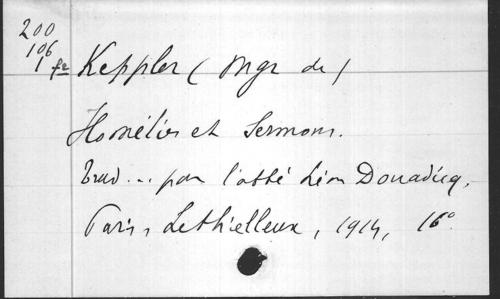 200
106
1
Keppler (Mgr de)
Homélies et Sermons.
Trad... par l'abbé Léon Douadicq,
Paris, Lethielleux, 1914, 16°